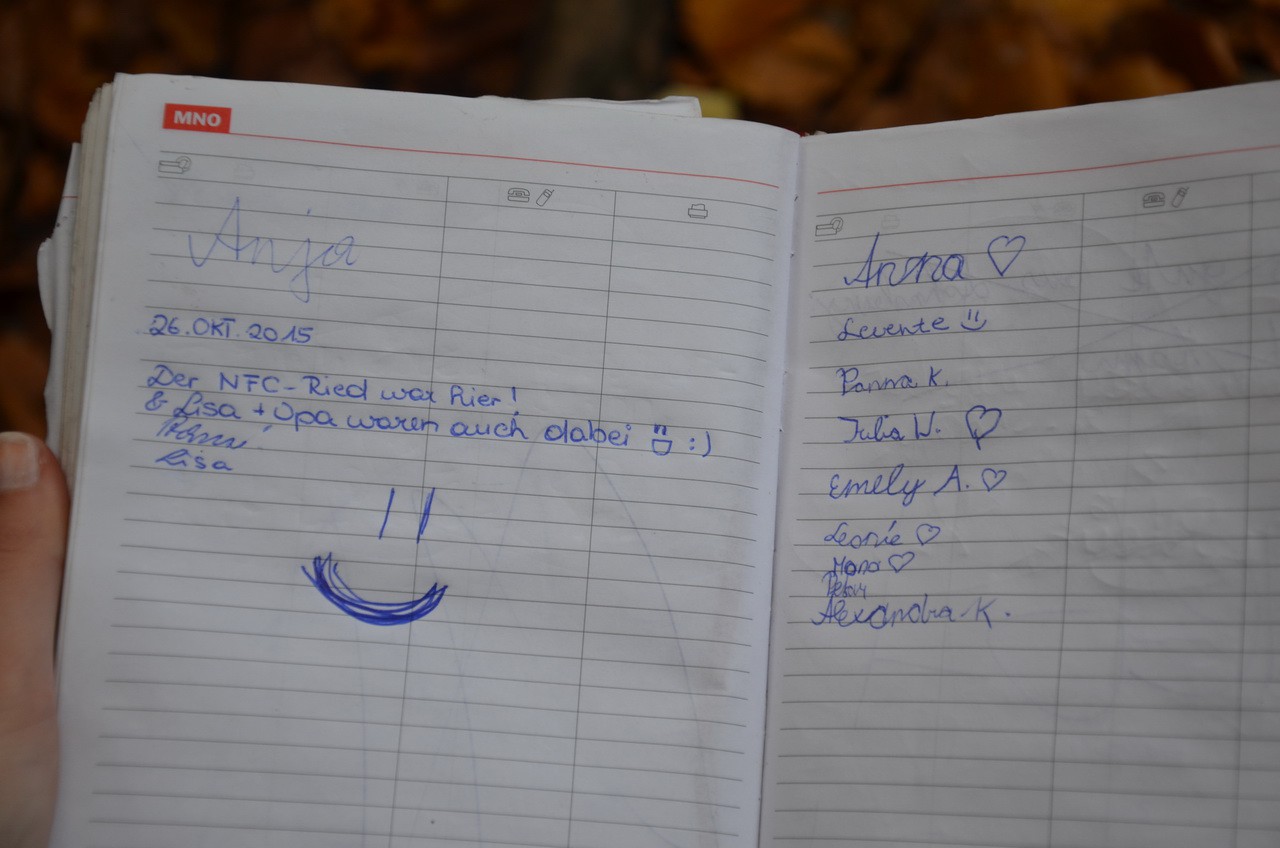 MNO
Anja
26. OKT. 2015
Der NFC-Ried war hier!
& Lisa + Opa waren auch dabei :)
Lisa
Anna ♡
Levente
Panna K.
Julia W. ♡
Emely A. ♡
Leonie ♡
Mona ♡
Alexandra K.